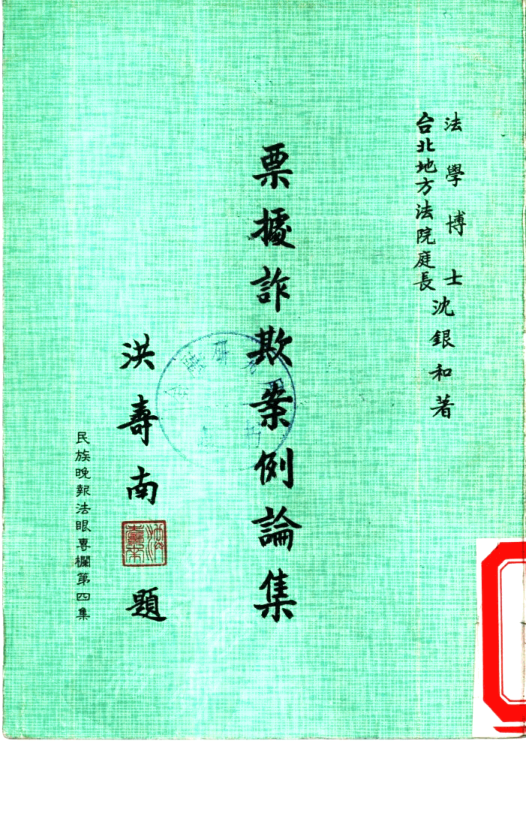 法學博士
台北地方法院庭長
沈銀和著
票據詐欺案例論集
洪壽南題
民族晚報法眼專欄第四集